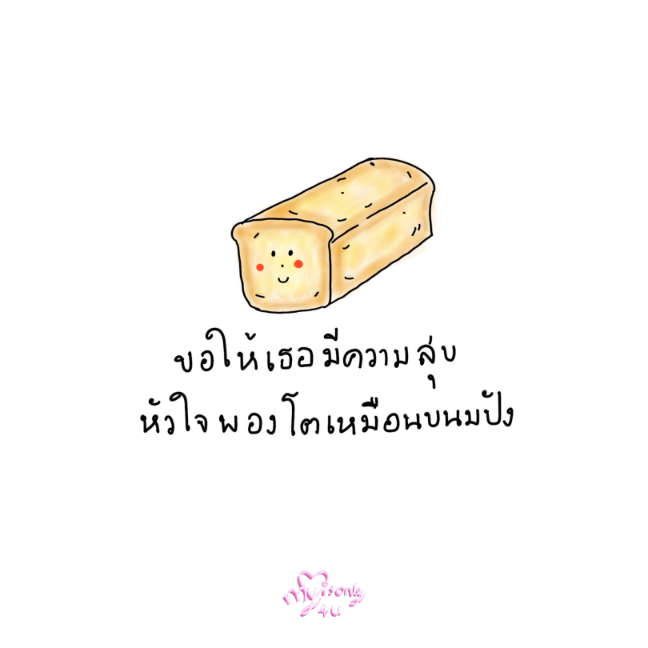 ขอให้เธอมีความสุข
หัวใจพองโตเหมือนขนมปัง
myisonly
4u